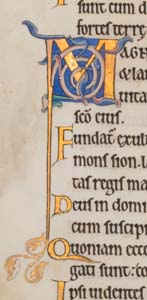 sunt cum d
fortes terre
MAGN
& lau
uitat
scō eius.
Fundat̄ exul
mons sion. la
tas regis ma
Deus in dom
cum suscipi
Quoniam ecc
gati sunt: co
Ipsi uidentes